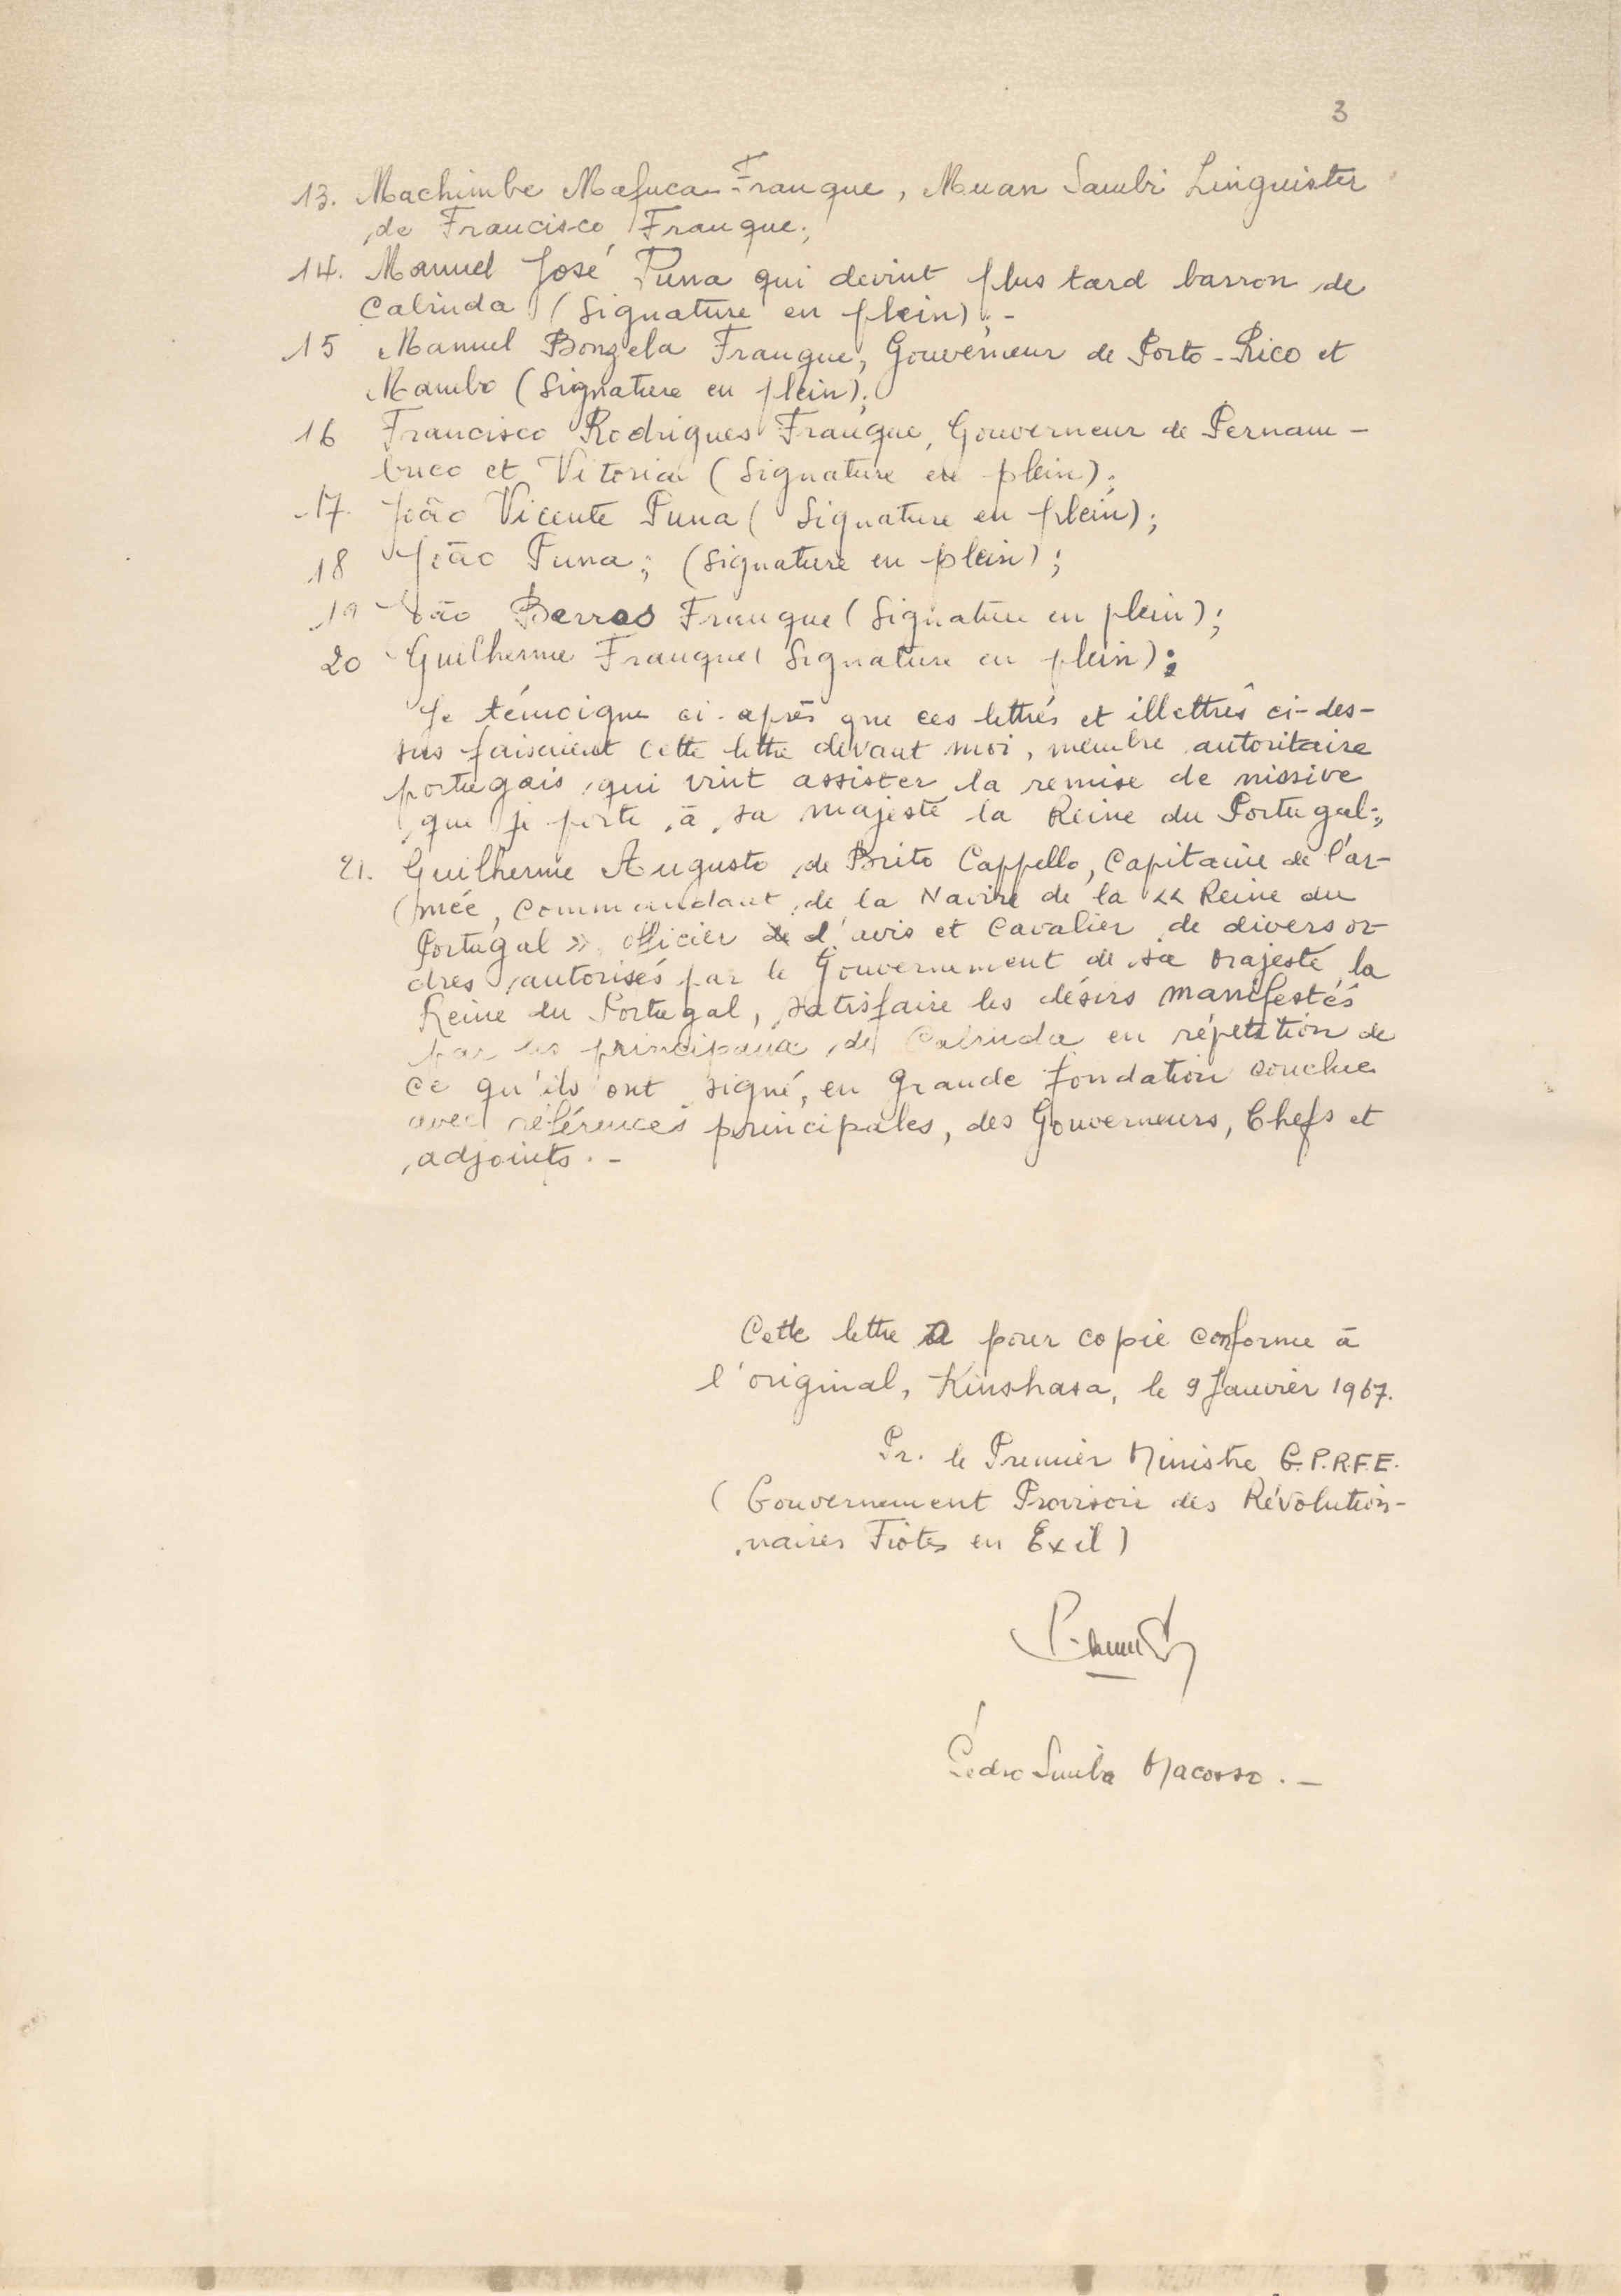 3
13. Machimbe Mafuca Franque, Muan Sambi Linguister
de Francisco Franque;
14. Manuel José Puna qui devint plus tard barron de
Cabinda (Signature en plein);-
15 Manuel Bonzela Franque, Gouverneur de Porto-Rico et
Mambo (Signature en plein);
16 Francisco Rodrigues Franque, Gouverneur de Pernam-
buco et Vitoria (Signature en plein);
17. João Vicente Puna (Signature en plein);
18 João Puna; (Signature en plein);
19 João Barros Franque (Signature en plein);
20 Guilherme Franque (Signature en plein);
Je témoigne ci-après que ces lettrés et illettrés ci-des-
sus faisaient cette lettre devant moi, membre autoritaire
portugais, qui vint assister la remise de missive
que je porte à sa majesté la Reine du Portugal;
21. Guilherme Augusto de Brito Cappello, Capitaine de l'ar-
mée, Commandant de la Navire de la « Reine du
Portugal » officier de d'avis et Cavalier de divers or-
dres autorisés par le Gouvernement de sa majesté la
Reine du Portugal, satisfaire les désirs manifestés
par les principaux de Cabinda en répetition de
ce qu'ils ont signé, en grande fondation conclue
avec références principales, des Gouverneurs, Chefs et
adjoints.-
Cette lettre a pour copie conforme à
l'original, Kinshasa, le 9 Janvier 1967.
Pr. le Premier Ministre G.P.R.F.E.
(Gouvernement Provisoir des Révolution-
naires Fiotes en Exil)
Pedro Simba Macosso.-